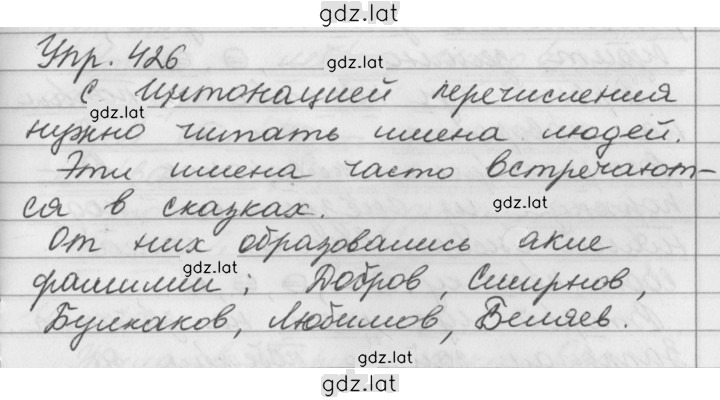 gdz.lat
Упр. 426
gdz.lat
С интонацией перечисления
gdz.lat
нужно читать имена людей.
Эти имена часто встречают-
ся в сказках.
gdz.lat
От них образовались акие
gdz.lat
фамилии; Добров, Смирнов,
Булкаков, Любимов, Беляев.
gdz.lat
gdz.lat